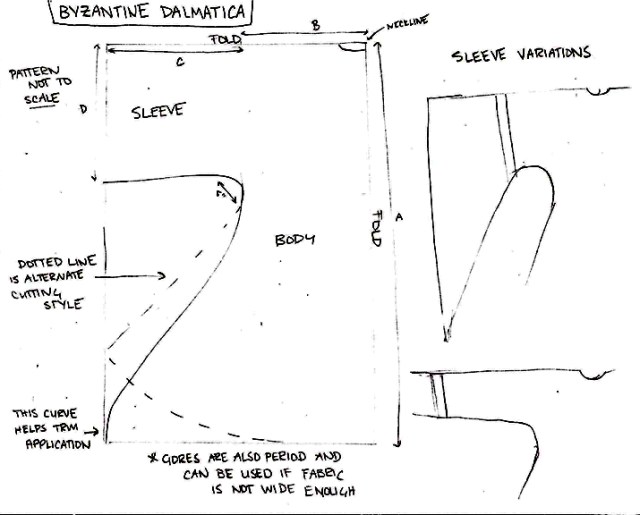 BYZANTINE DALMATICA
B
NECKLINE
FOLD
C
SLEEVE VARIATIONS
PATTERN
NOT TO
SCALE
D
SLEEVE
FOLD
A
BODY
DOTTED LINE
IS ALTERNATE
CUTTING
STYLE
THIS CURVE
HELPS TRIM
APPLICATION
* GORES ARE ALSO PERIOD AND
CAN BE USED IF FABRIC
IS NOT WIDE ENOUGH